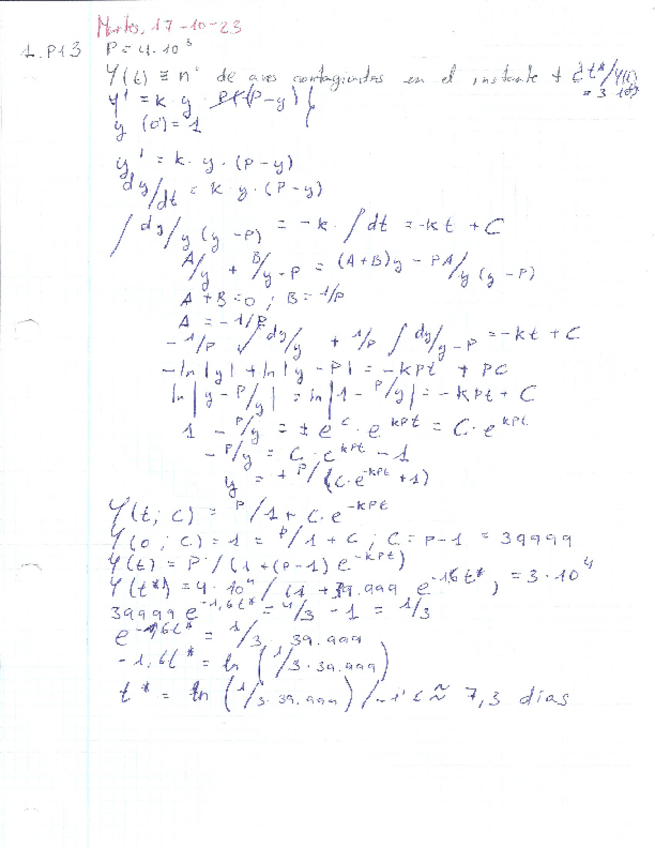 Martes, 17-10-23
1. P13 P = 4·10³
Y(t) ≡ nº de aves contagiadas en el instante t ¿t*/Y(t)
= 3·10⁴?
y' = k·y (P-y) {
y (0) = 1
y' = k·y·(P-y)
dy/dt = k·y·(P-y)
∫ dy/y(y-P) = -k·∫dt = -kt + C
A/y + B/y-P = (A+B)y - PA/y(y-P)
A+B=0; B=1/P
A = -1/P
-1/P ∫ dy/y + 1/P ∫ dy/y-P = -kt + C
-ln|y| + ln|y-P| = -kPt + PC
ln|y-P/y| = ln|1-P/y| = -kPt + C
1 - P/y = ± e^C · e^kPt = C·e^kPt
-P/y = C·e^kPt - 1
y = +P/(C·e^-kPt + 1)
Y(t; C) = P/1 + C·e^-kPt
Y(0; C) = 1 = P/1+C; C = P-1 = 39999
Y(t) = P/(1+(P-1)e^-kPt)
Y(t*) = 4·10⁴/(1 + 39.999 e^-1,6t*) = 3·10⁴
39999 e^-1,6t* = 4/3 - 1 = 1/3
e^-1,6t* = 1/3·39.999
-1,6t* = ln (1/3·39.999)
t* = ln (1/3·39.999)/-1,6 ≈ 7,3 días